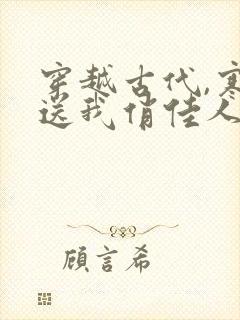 穿越古代,寒
送我俏佳人
顾言希